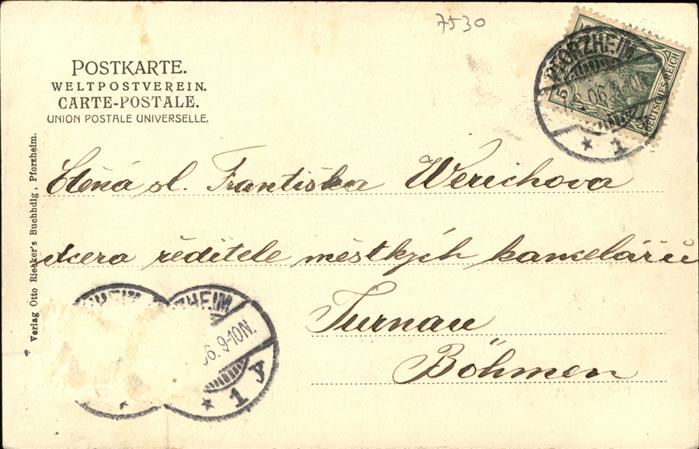 7530
POSTKARTE.
WELTPOSTVEREIN.
CARTE-POSTALE.
UNION POSTALE UNIVERSELLE.
PFORZHEIM
5 06
* 1
DEUTSCHES REICH
Ctěná sl. Frantiska Werichova
dcera ředitele městkých kanceláří
Turnau
Böhmen
ZHEIM
06. 9-10N.
* 1 y
Verlag Otto Riecker's Buchhdlg., Pforzheim.